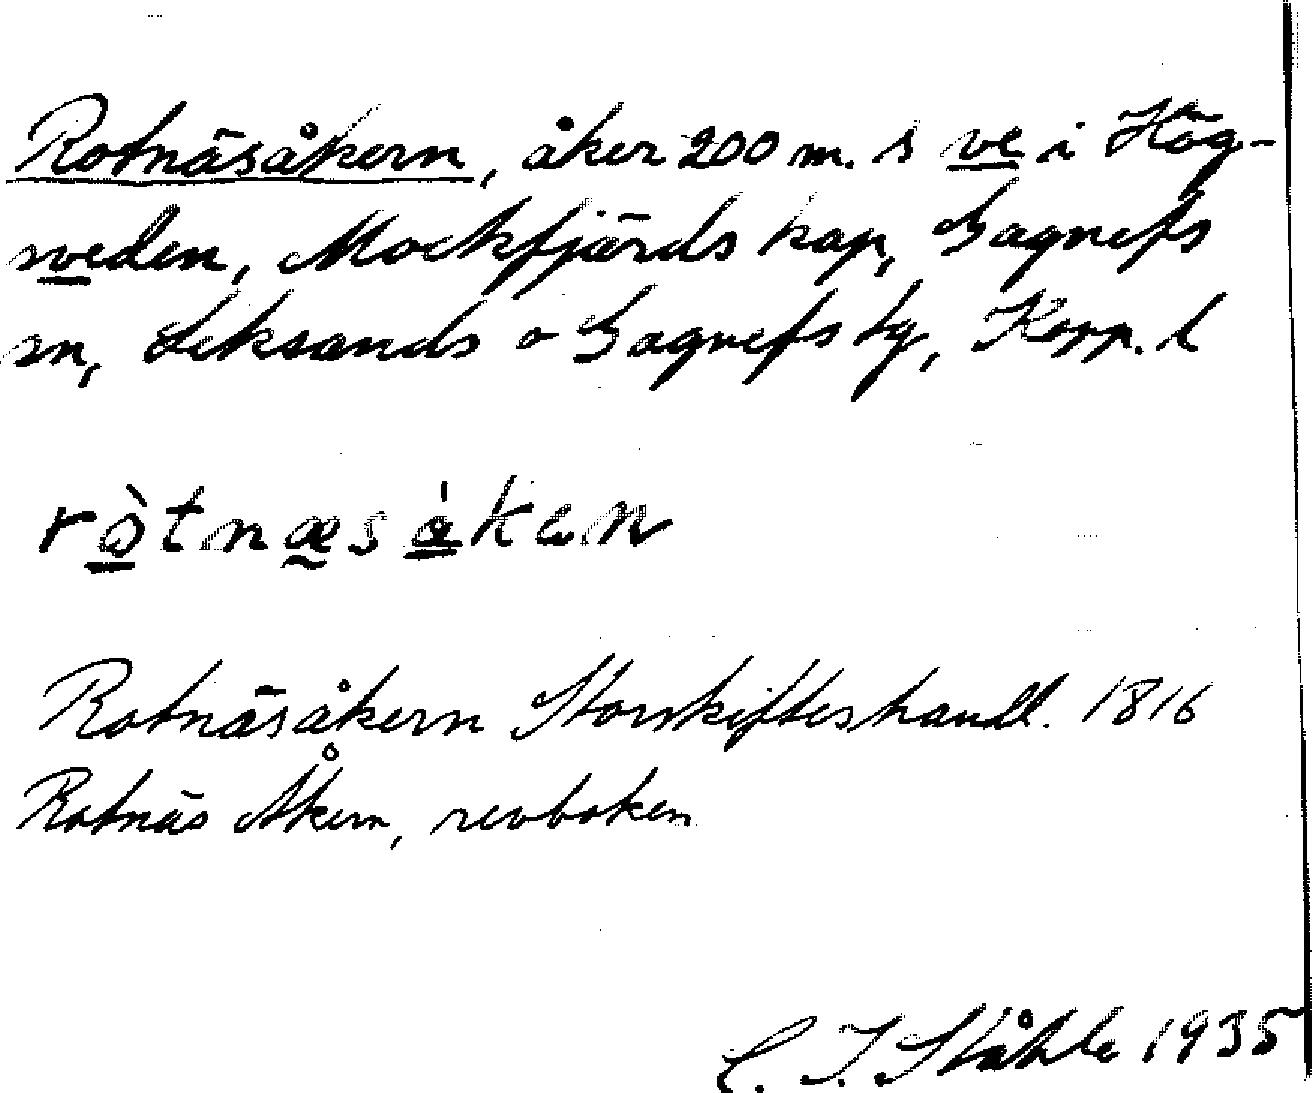 Rotnäsåkern, åker 200 m. s ve i Hög-
sveden, Mockfjärds kap, Gagnefs
sn, Leksands o Gagnefs tg, Kopp. l
ròtnæsákan
Rotnäsåkern Storskifteshandl. 1816
Rotnäs Åkern, revboken
C. I. Ståhle 1935